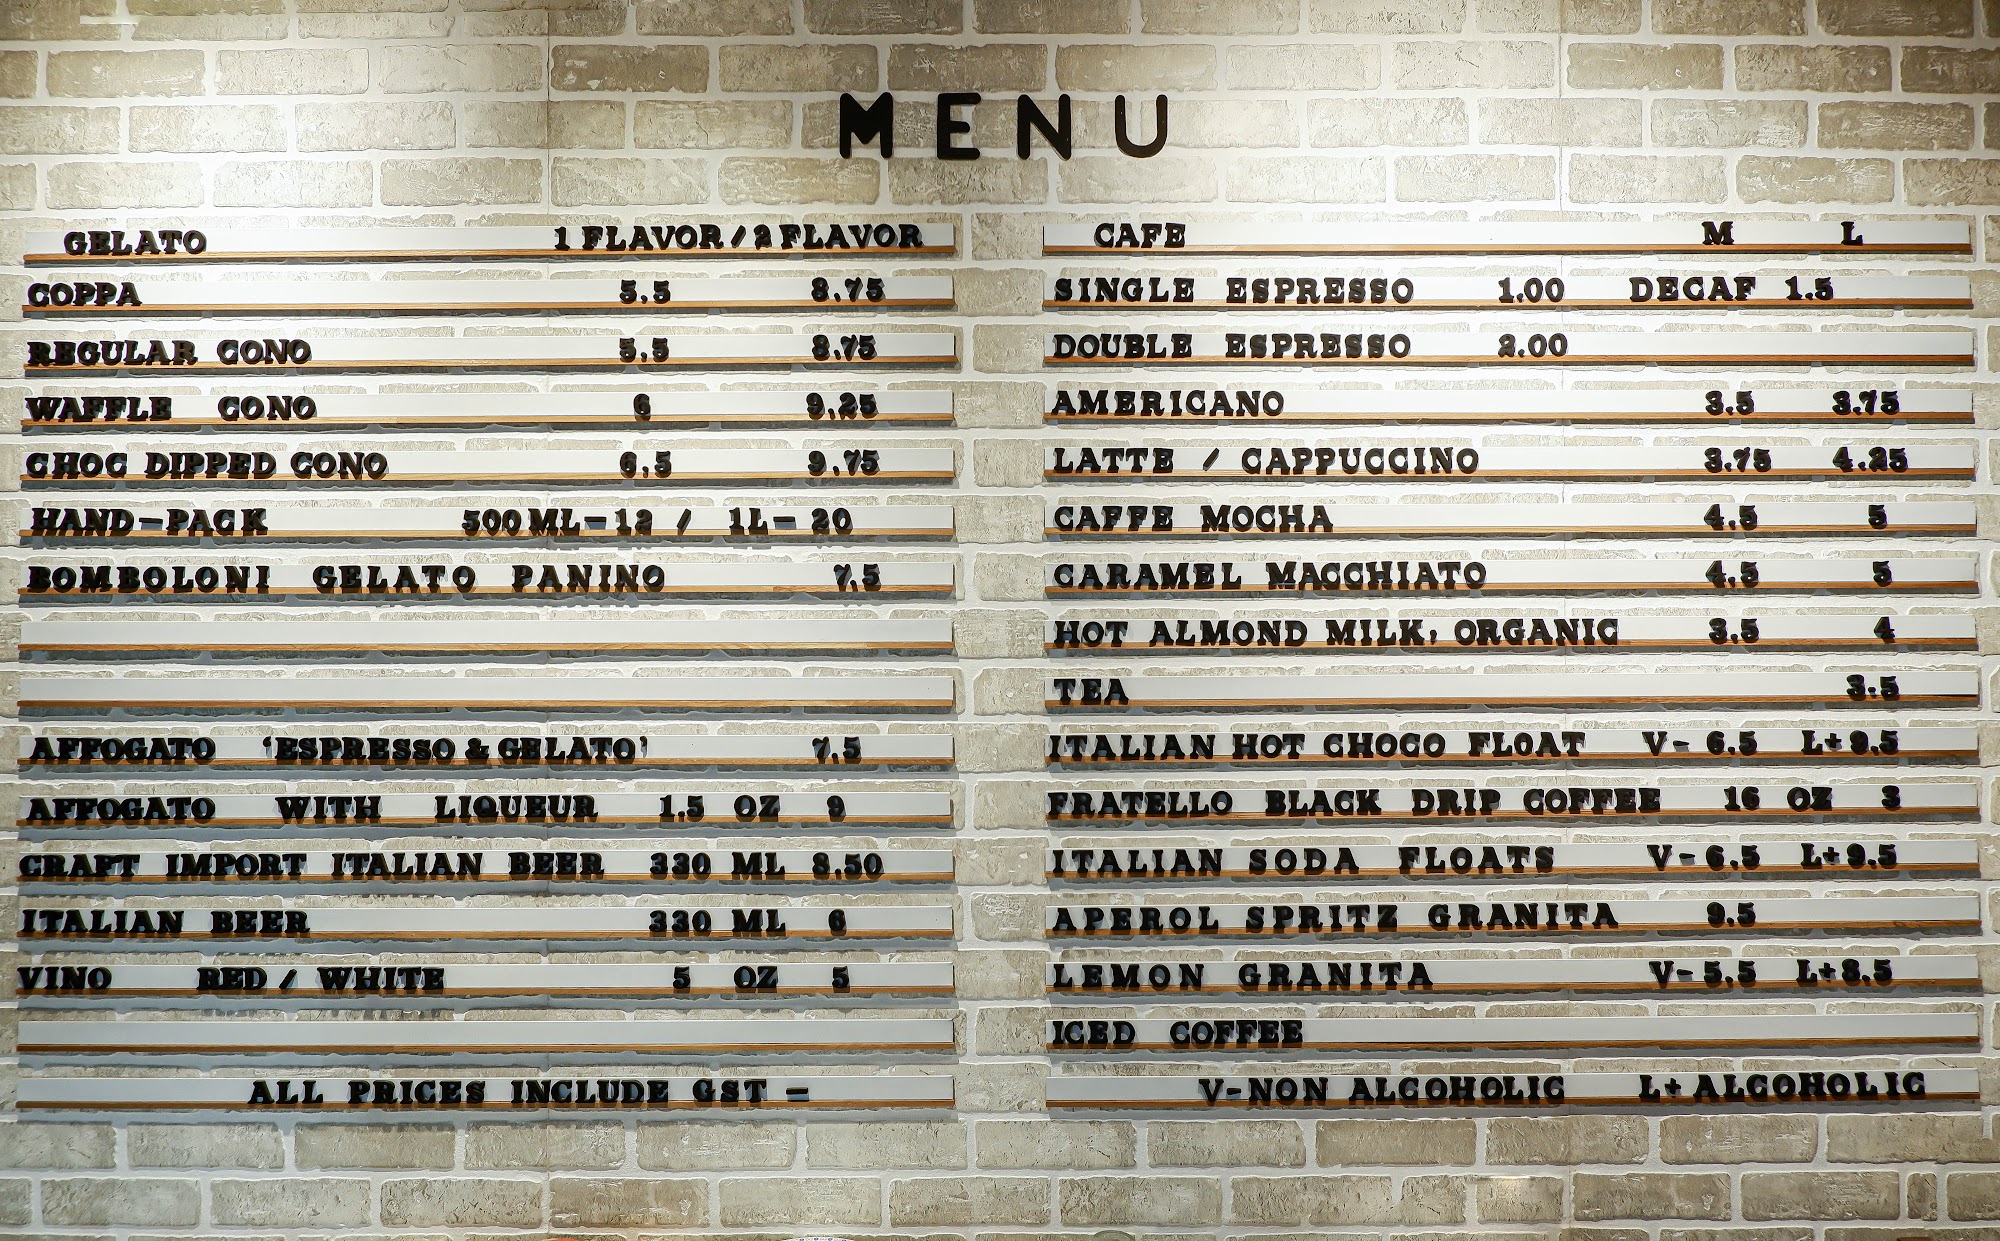 MENU
GELATO 1 FLAVOR / 2 FLAVOR
COPPA 5.5 8.75
REGULAR CONO 5.5 8.75
WAFFLE CONO 6 9.25
CHOC DIPPED CONO 6.5 9.75
HAND-PACK 500ML-12 / 1L-20
BOMBOLONI GELATO PANINO 7.5
AFFOGATO 'ESPRESSO & GELATO' 7.5
AFFOGATO WITH LIQUEUR 1.5 OZ 9
CRAFT IMPORT ITALIAN BEER 330 ML 8.50
ITALIAN BEER 330 ML 6
VINO RED / WHITE 5 OZ 5
ALL PRICES INCLUDE GST -
CAFE M L
SINGLE ESPRESSO 1.00 DECAF 1.5
DOUBLE ESPRESSO 2.00
AMERICANO 3.5 3.75
LATTE / CAPPUCCINO 3.75 4.25
CAFFE MOCHA 4.5 5
CARAMEL MACCHIATO 4.5 5
HOT ALMOND MILK, ORGANIC 3.5 4
TEA 3.5
ITALIAN HOT CHOCO FLOAT V- 6.5 L+9.5
FRATELLO BLACK DRIP COFFEE 16 OZ 3
ITALIAN SODA FLOATS V-6.5 L+9.5
APEROL SPRITZ GRANITA 9.5
LEMON GRANITA V-5.5 L+8.5
ICED COFFEE
V-NON ALCOHOLIC L+ALCOHOLIC